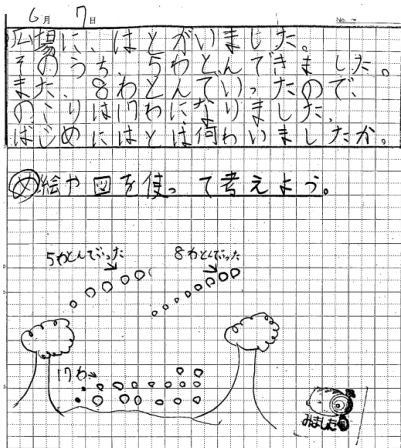 6月 7日
No.
広場に、はとがいました。
そのうち、5わとんできました。
また、8わとんでいったので、
のこりは17わになりました。
はじめにはとは何わいましたか。
め 絵や図を使って考えよう。
5わとんでいった
8わとんでいった
17わ
みました